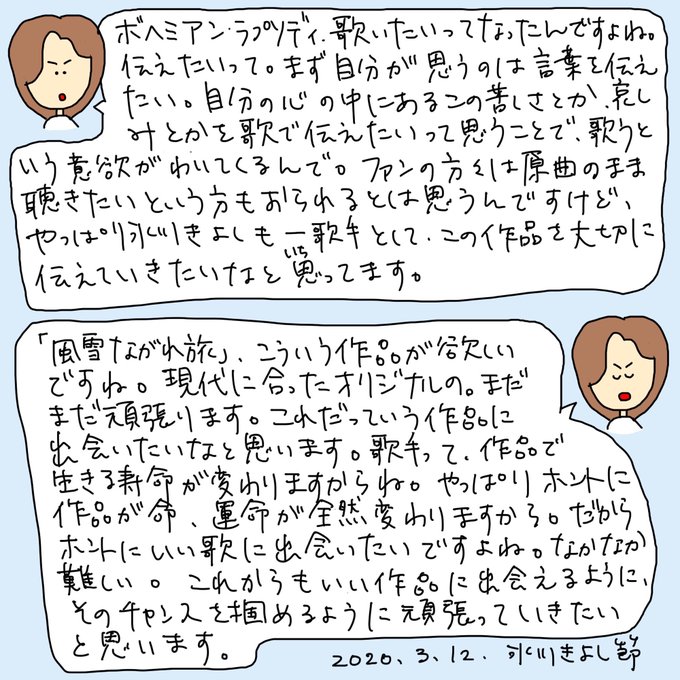 ボヘミアン・ラプソディ、歌いたいってなったんですよね。
伝えたいって。まず自分が思うのは言葉を伝え
たい。自分の心の中にあるこの苦しさとか、哀し
みとかを歌で伝えたいって思うことで、歌うと
いう意欲がわいてくるんで。ファンの方々は原曲のまま
聴きたいという方もおられるとは思うんですけど、
やっぱり氷川きよしも一歌手として、この作品を大切に
いち
伝えていきたいなと思ってます。
「風雪ながれ旅」、こういう作品が欲しい
ですね。現代に合ったオリジナルの。まだ
まだ頑張ります。これだっていう作品に
出会いたいなと思います。歌手って、作品で
生きる寿命が変わりますからね。やっぱりホントに
作品が命、運命が全然変わりますから。だから
ホントにいい歌に出会いたいですよね。なかなか
難しい。これからもいい作品に出会えるように、
そのチャンスを掴めるように頑張っていきたい
と思います。
2020.3.12. 氷川きよし節